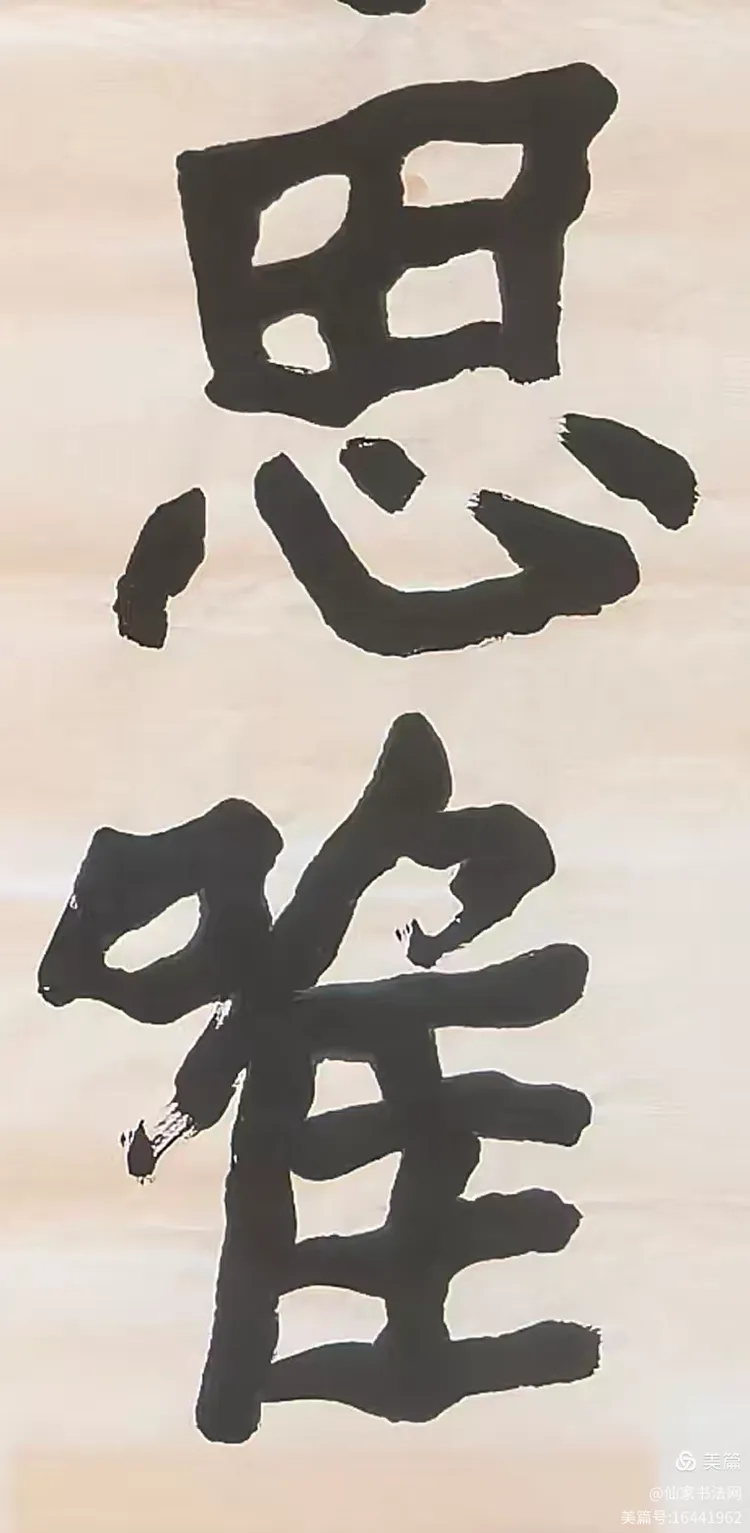 思唯
美篇
@仙家书法网
美篇号:16441962